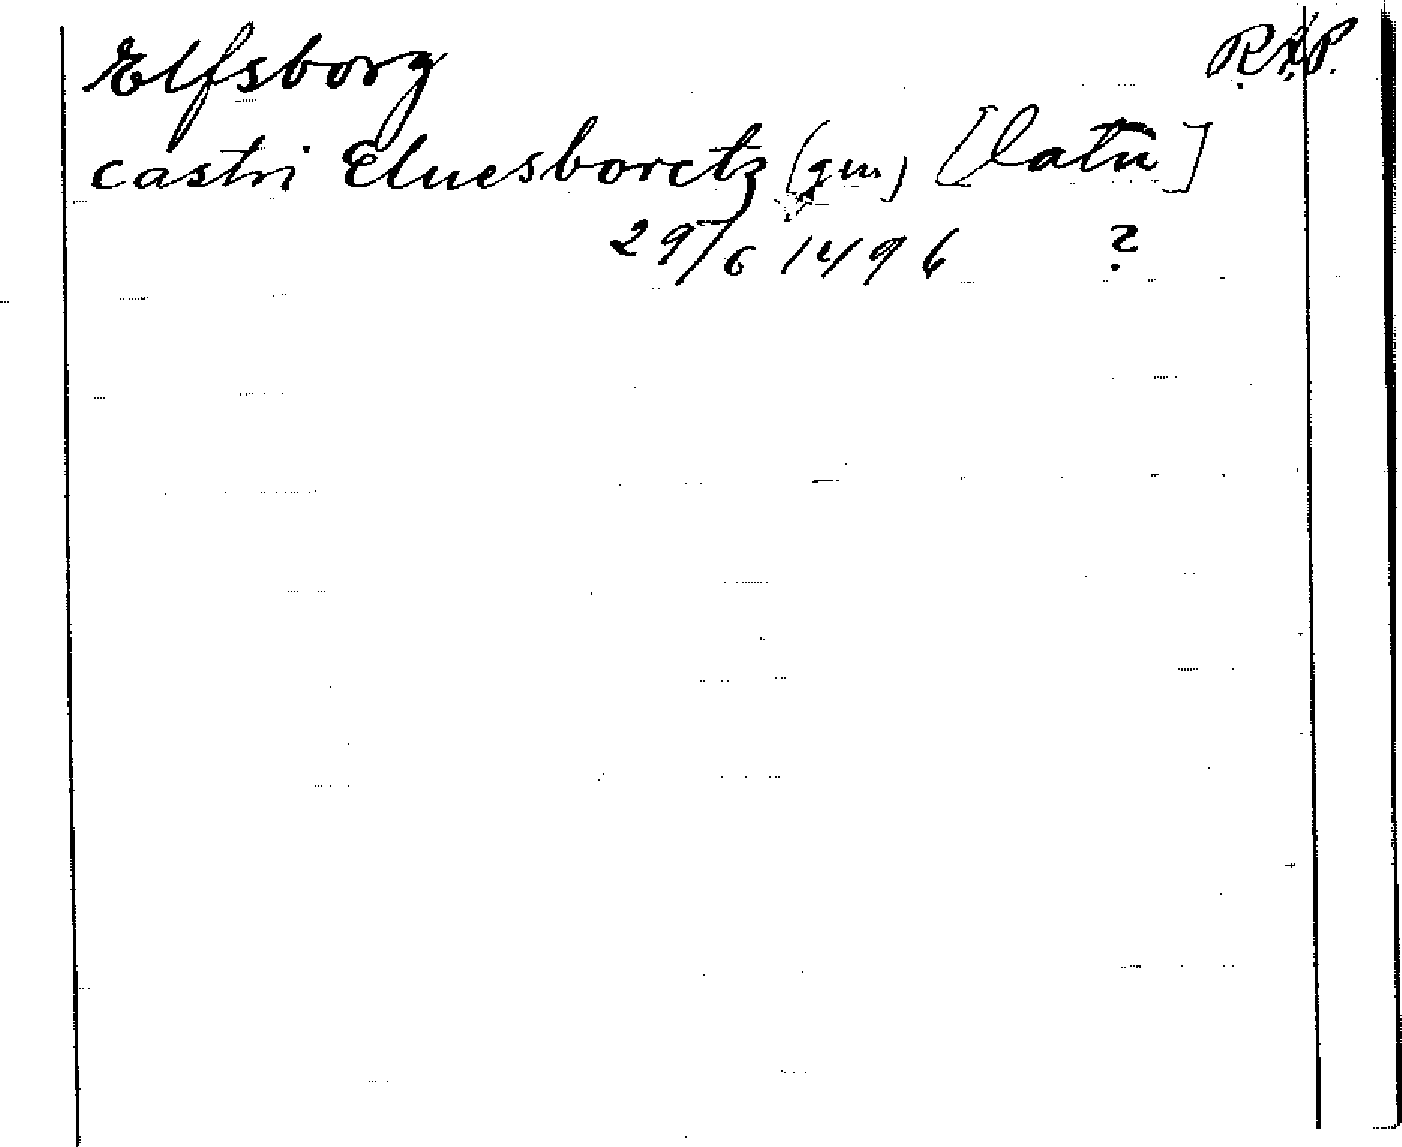 Elfsborg R.A.P.
castri Eluesborctz (gm) [latin]
29/6 1496 ?